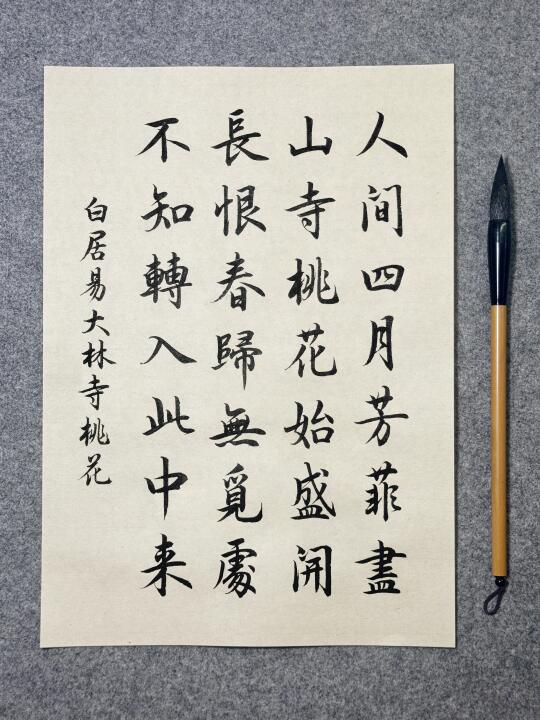 人间四月芳菲盡
山寺桃花始盛开
長恨春歸無覓處
不知轉入此中来
白居易大林寺桃花